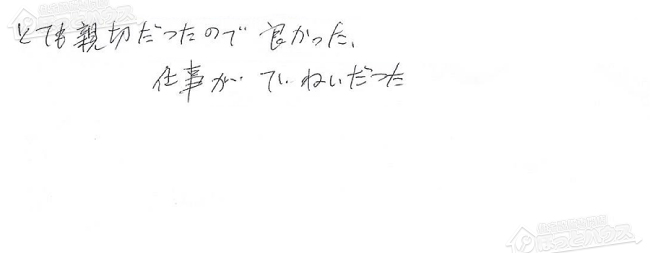 とても親切だったので良かった、
仕事がていねいだった